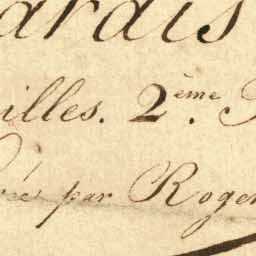 ardis
illes. 2.ème
ée par Roger